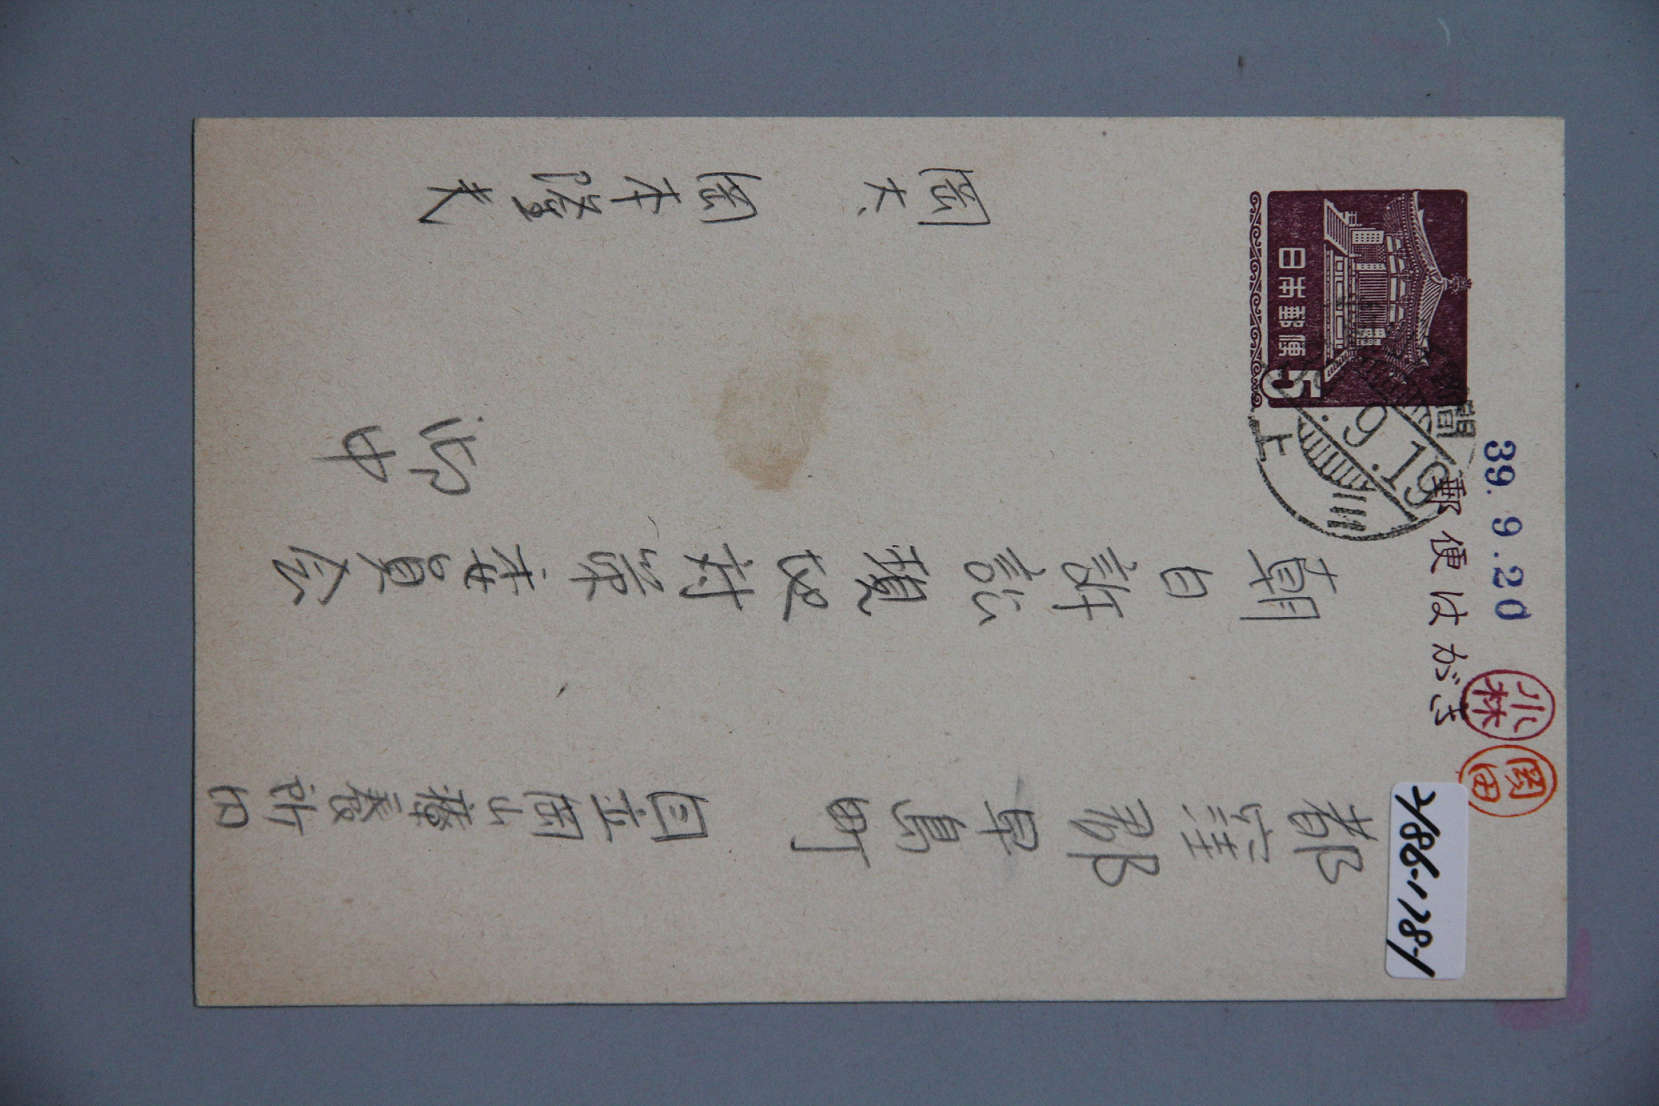 郵便はがき
日本郵便
5
.9.19
39.9.20
小林
都窪郡早島町
国立岡山療養所内
朝日訴訟現地対策委員会
御中
岡大 岡本隆夫